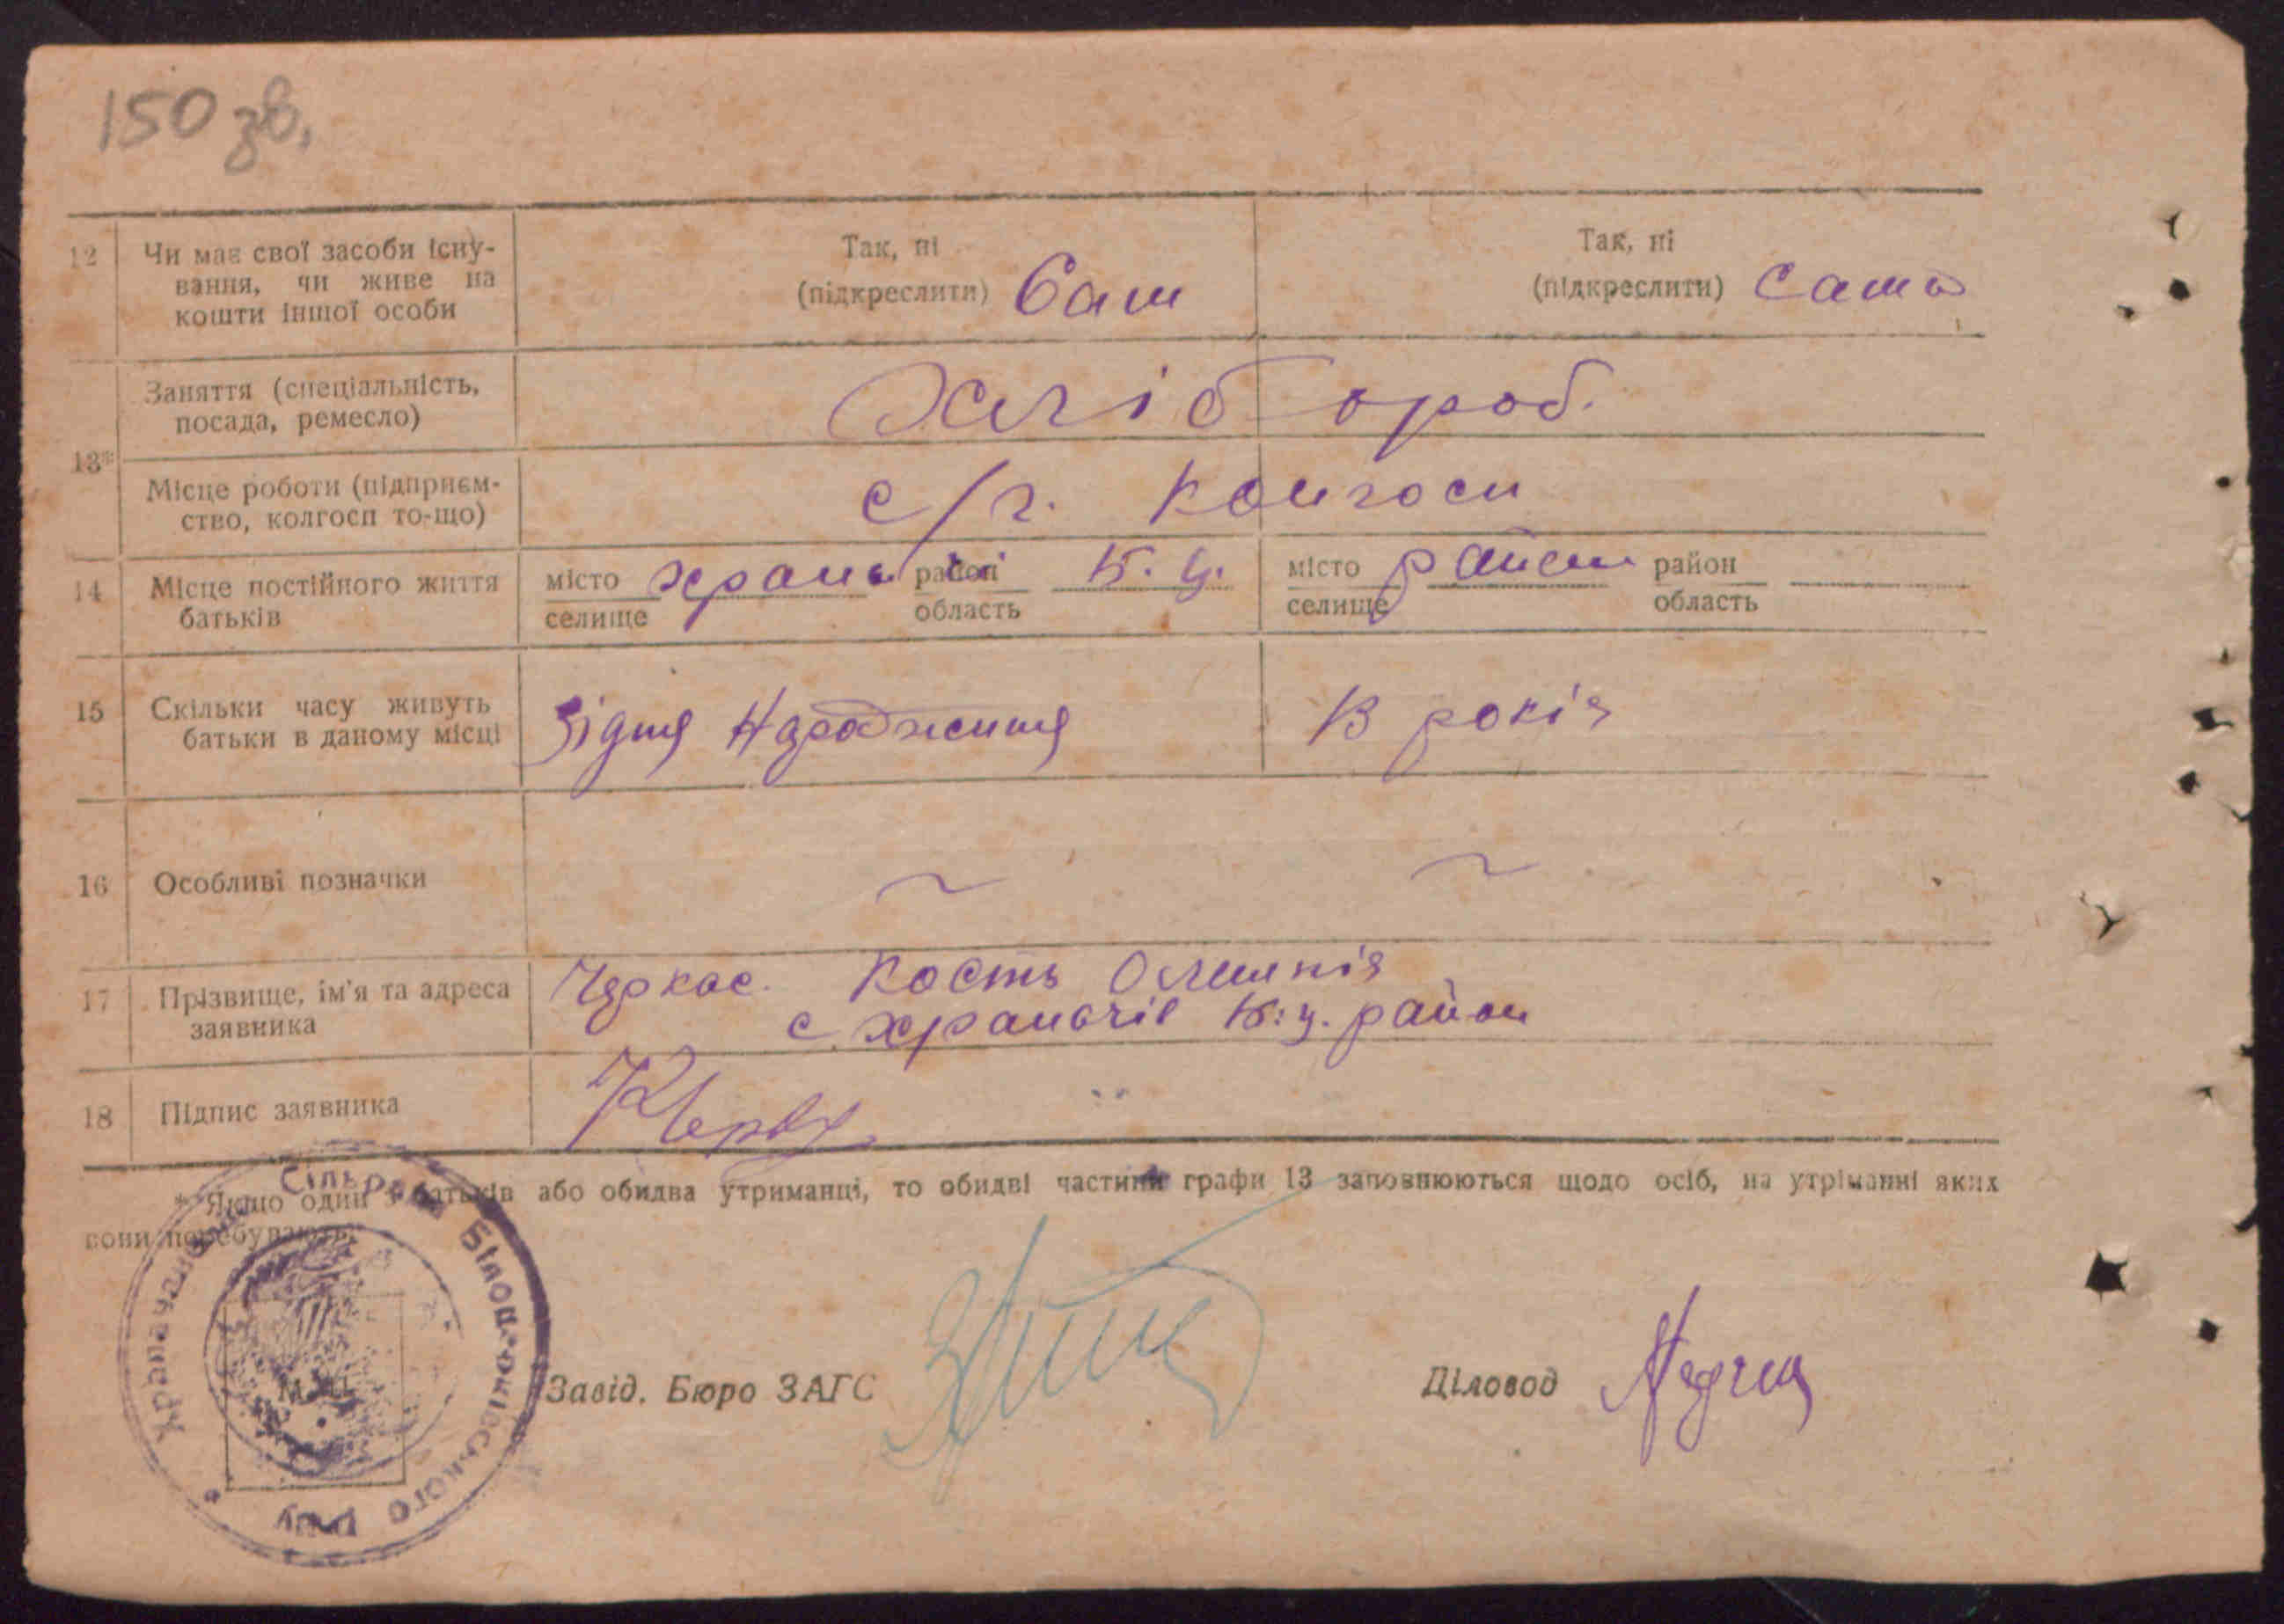 150 зв.
12 Чи має свої засоби існу-
вання, чи живе на
кошти іншої особи
Так, ні
(підкреслити) Сам
Так, ні
(підкреслити) Сама
Заняття (спеціальність,
посада, ремесло)
Хлібороб.
13*
Місце роботи (підприєм-
ство, колгосп то-що)
с/г. колгосп
14 Місце постійного життя
батьків
місто
селище
район
область
К. Ц.
місто
селище
район
область
15 Скільки часу живуть
батьки в даному місці
Зідня Народження
13 років
16 Особливі позначки
17 Прізвище, ім'я та адреса
заявника
Черкас. Кость
с Храпачів Б:ц. район
18 Підпис заявника
* Якщо один з батьків або обидва утриманці, то обидві частини графи 13 заповнюються щодо осіб, на утріманні яких
вони перебувають.
Сільрада Білоцерківського р-ну
М. П.
Завід. Бюро ЗАГС
Діловод